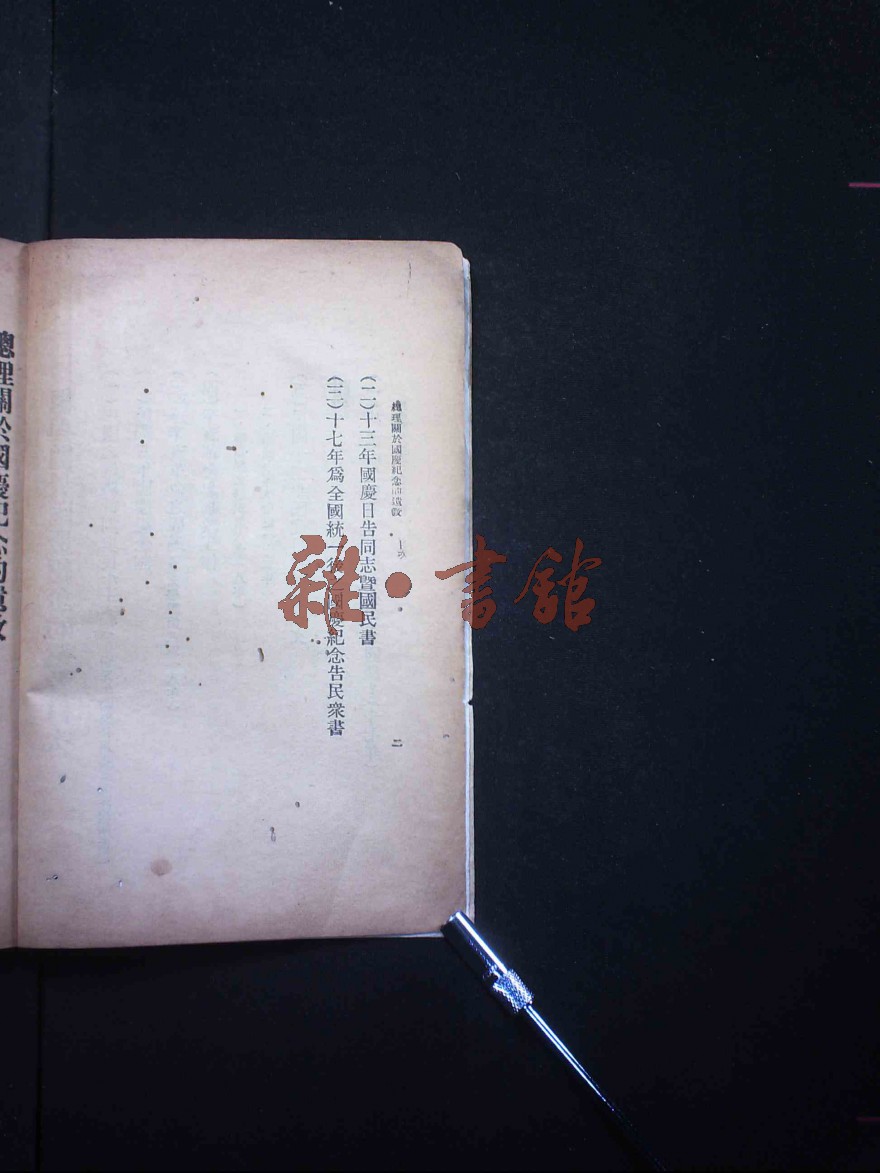 總理關於國慶紀念的遺敎
二
(二)十三年國慶日告同志暨國民書
(三)十七年爲全國統一後之國慶紀念告民衆書
總理關於國慶紀念的遺敎
雜·書館